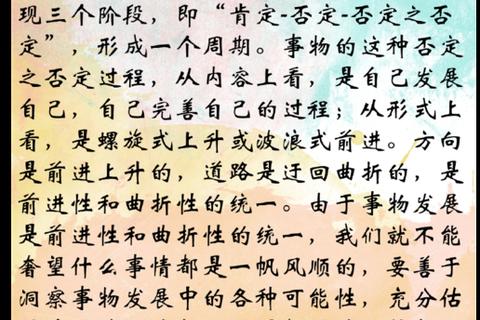 现三个阶段，即“肯定-否定-否定之否
定”，形成一个周期。事物的这种否定
之否定过程，从内容上看，是自己发展
自己，自己完善自己的过程；从形式上
看，是螺旋式上升或波浪式前进。方向
是前进上升的，道路是迂回曲折的，是
前进性和曲折性的统一。由于事物发展
是前进性和曲折性的统一，我们就不能
奢望什么事情都是一帆风顺的，要善于
洞察事物发展中的各种可能性，充分估